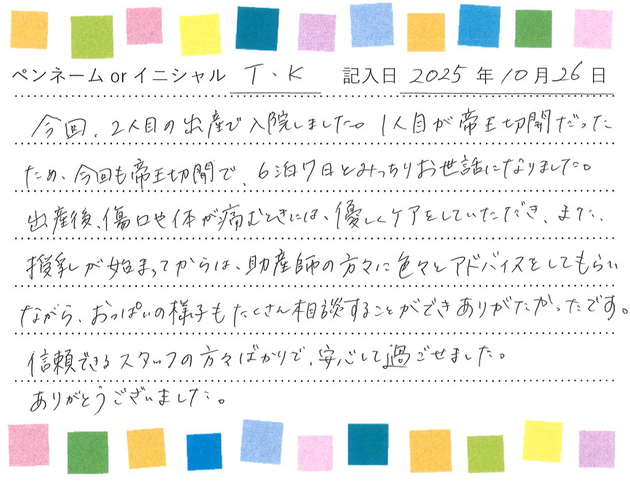 ペンネーム or イニシャル T・K 記入日 2025 年 10 月 26 日
今回、2人目の出産で入院しました。1人目が帝王切開だった
ため、今回も帝王切開で、6泊7日とみっちりお世話になりました。
出産後、傷口や体が痛むときには、優しくケアをしていただき、また、
授乳が始まってからは、助産師の方々に色々とアドバイスをしてもらい
ながら、おっぱいの様子もたくさん相談することができありがたかったです。
信頼できるスタッフの方々ばかりで、安心して過ごせました。
ありがとうございました。